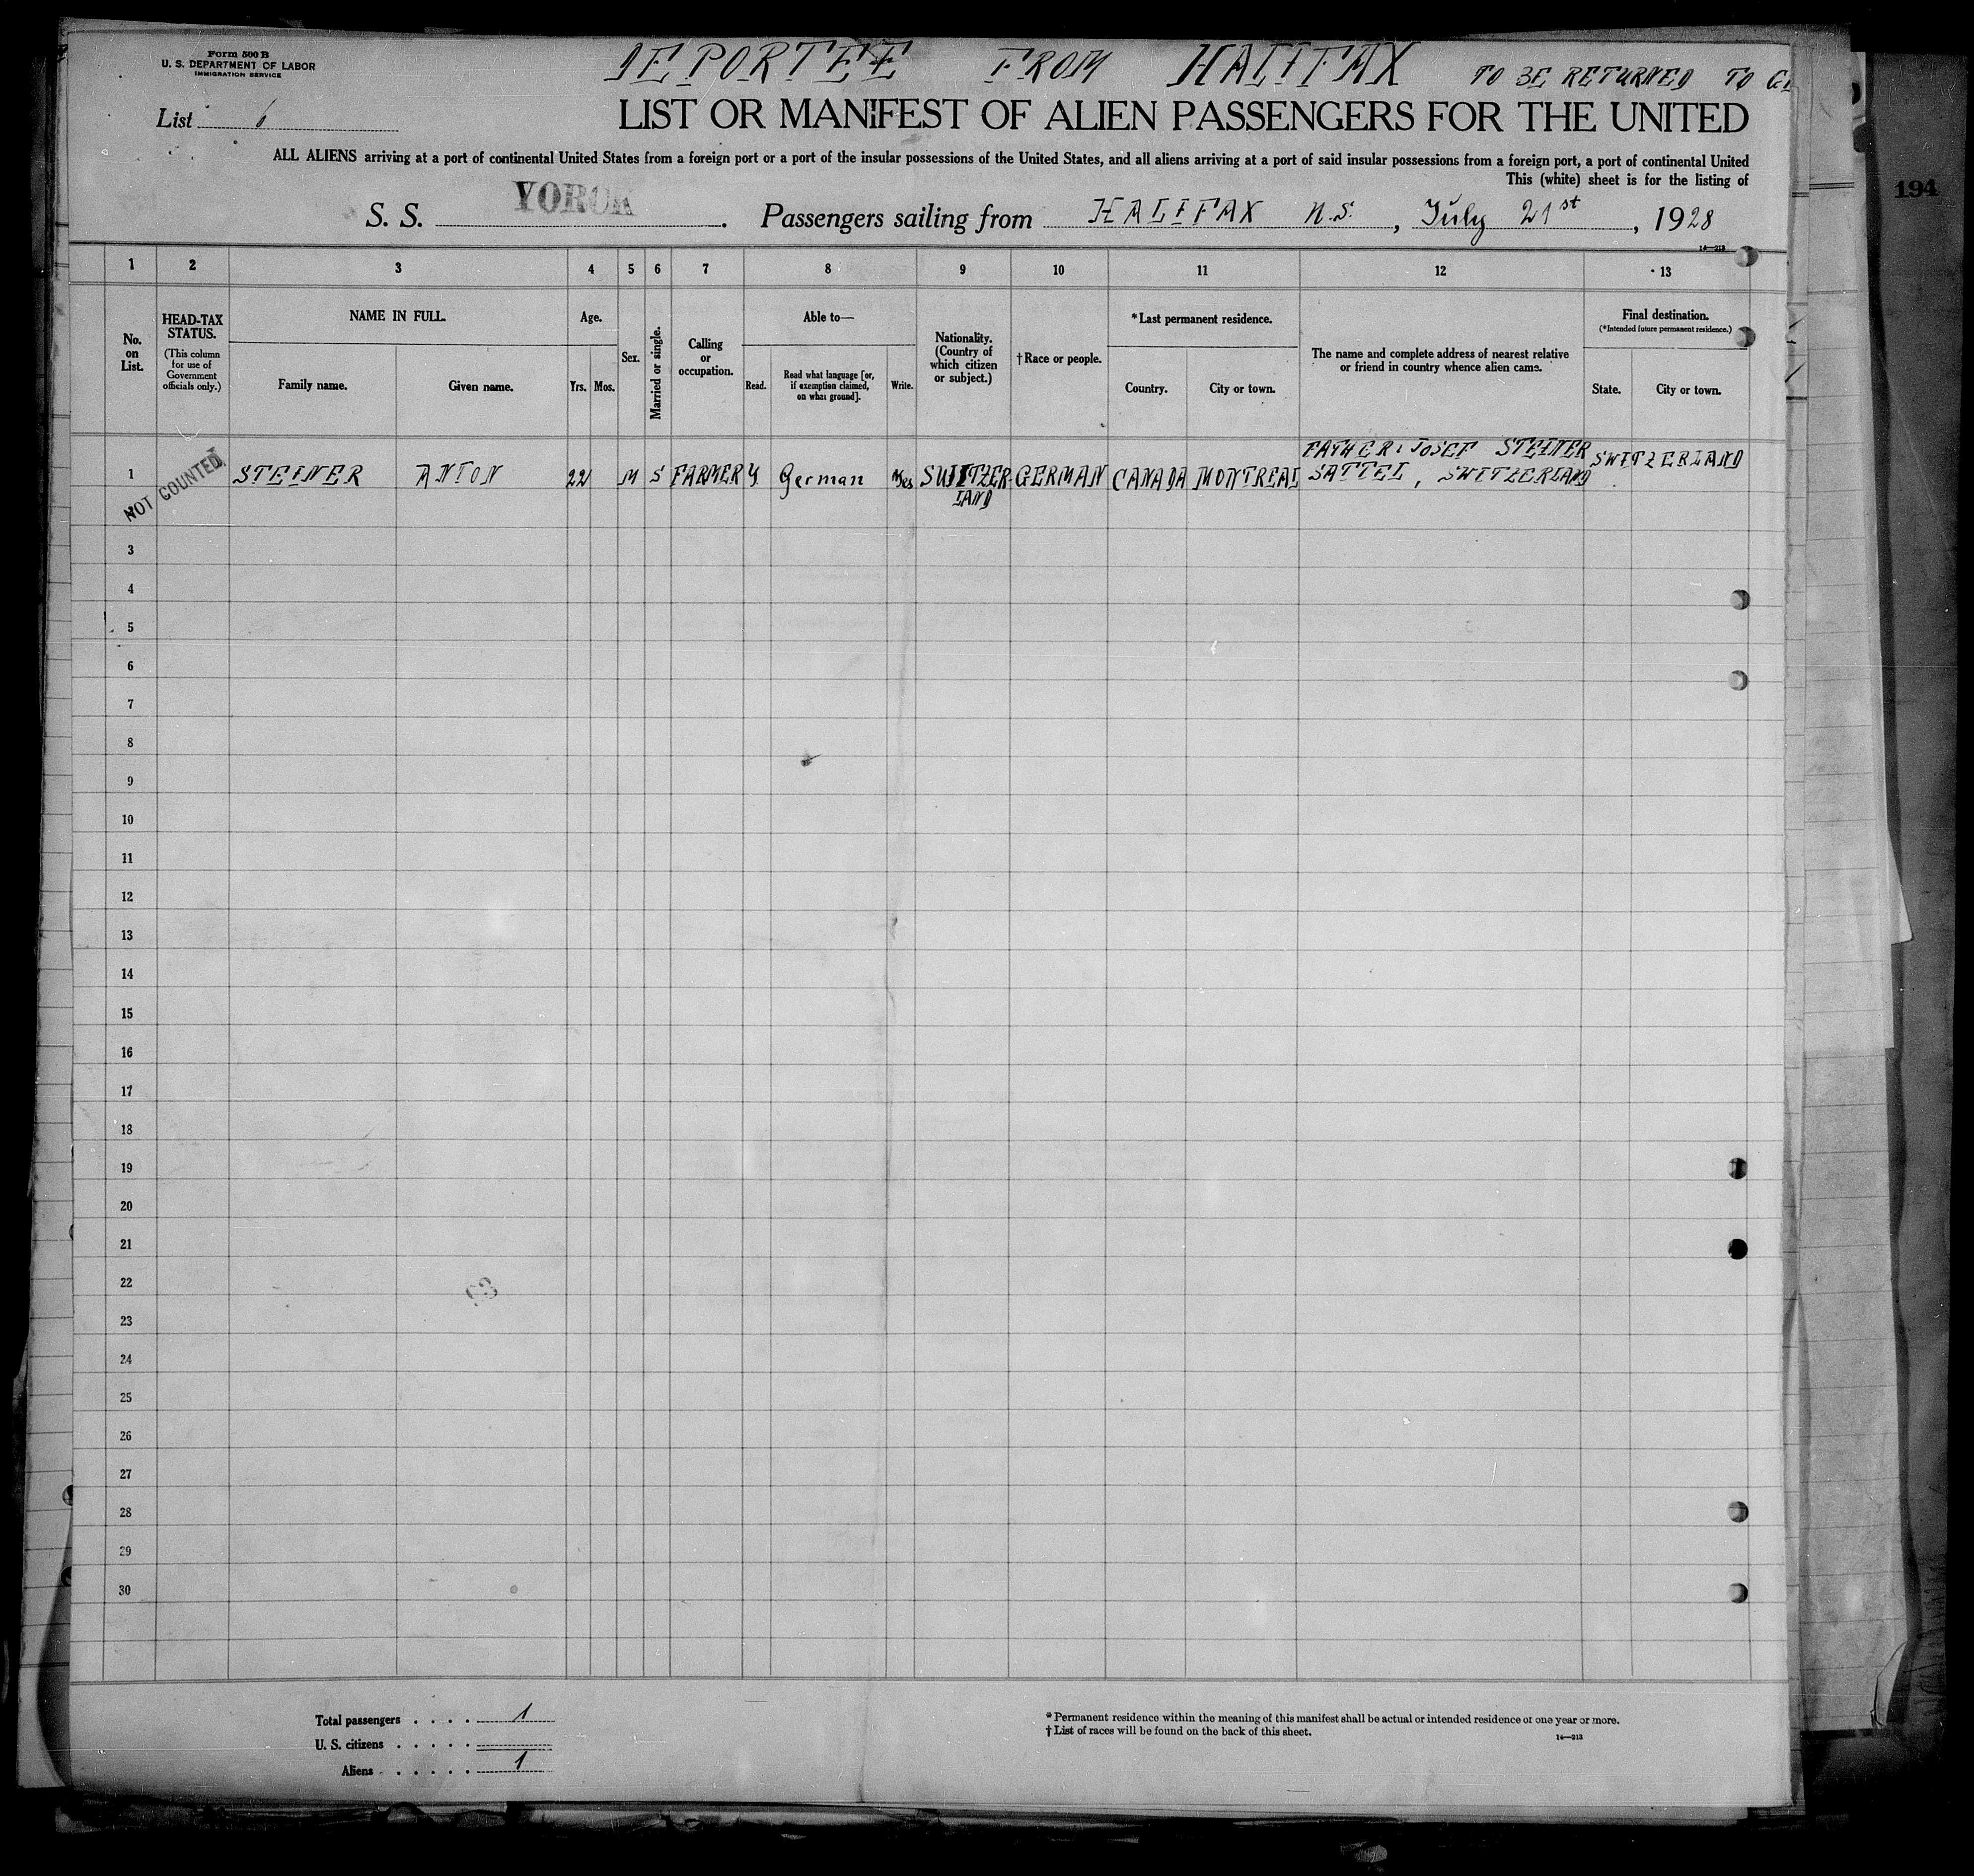 Form 500 B
U. S. DEPARTMENT OF LABOR
IMMIGRATION SERVICE
DEPORTEE FROM HALIFAX TO BE RETURNED TO
List 6
LIST OR MANIFEST OF ALIEN PASSENGERS FOR THE UNITED
ALL ALIENS arriving at a port of continental United States from a foreign port or a port of the insular possessions of the United States, and all aliens arriving at a port of said insular possessions from a foreign port, a port of continental United
This (white) sheet is for the listing of
194
S. S. YORCK. Passengers sailing from HALIFAX N.S., July 21st, 1928
14—213
1 2 3 4 5 6 7 8 9 10 11 12 13
No. on List.
HEAD-TAX STATUS.
(This column for use of Government officials only.)
NAME IN FULL.
Family name. Given name.
Age.
Yrs. Mos.
Sex.
Married or single.
Calling or occupation.
Able to—
Read. Read what language [or, if exemption claimed, on what ground]. Write.
Nationality. (Country of which citizen or subject.)
†Race or people.
*Last permanent residence.
Country. City or town.
The name and complete address of nearest relative or friend in country whence alien came.
Final destination.
(*Intended future permanent residence.)
State. City or town.
FATHER: JOSEF STEINER
1 STEINER ANTON 22 M S FARMER Y. German Yes SWITZER- GERMAN CANADA MONTREAL SATTEL, SWITZERLAND SWITZERLAND
LAND
NOT COUNTED
3
4
5
6
7
8
9
10
11
12
13
14
15
16
17
18
19
20
21
22
23
24
25
26
27
28
29
30
Total passengers . . . . 1
U. S. citizens . . . . .
Aliens . . . . . . 1
* Permanent residence within the meaning of this manifest shall be actual or intended residence of one year or more.
† List of races will be found on the back of this sheet.
14—213